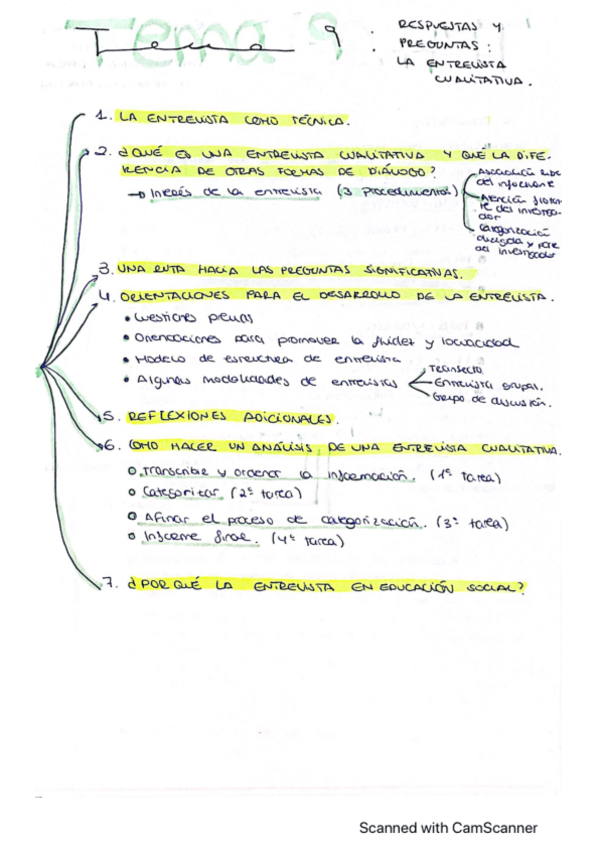 Tema 9 : RESPUESTAS Y
PREGUNTAS :
LA ENTREVISTA
CUALITATIVA.
1. LA ENTREVISTA COMO TÉCNICA.
2. ¿QUÉ ES UNA ENTREVISTA CUALITATIVA Y QUÉ LA DIFE-
RENCIA DE OTRAS FORMAS DE DIÁLOGO?
→ Interés de la entrevista (3 procedimientos)
Asociación libre
del informante
Atención flotan-
te del investiga-
dor
Categorización
del investigador
3. UNA RUTA HACIA LAS PREGUNTAS SIGNIFICATIVAS.
4. ORIENTACIONES PARA EL DESARROLLO DE LA ENTREVISTA.
• Cuestiones previas
• Orientaciones para promover la fluidez y locuacidad
• Modelo de estructura de entrevista
• Algunas modalidades de entrevistas
Transecto
Entrevista grupal.
Grupo de discusión.
5. REFLEXIONES ADICIONALES.
6. CÓMO HACER UN ANÁLISIS DE UNA ENTREVISTA CUALITATIVA.
o Transcribir y ordenar la información. (1ª tarea)
o Categorizar (2ª tarea)
o Afinar el proceso de categorización. (3ª tarea)
o Informe final. (4ª tarea)
7. ¿POR QUÉ LA ENTREVISTA EN EDUCACIÓN SOCIAL?
Scanned with CamScanner